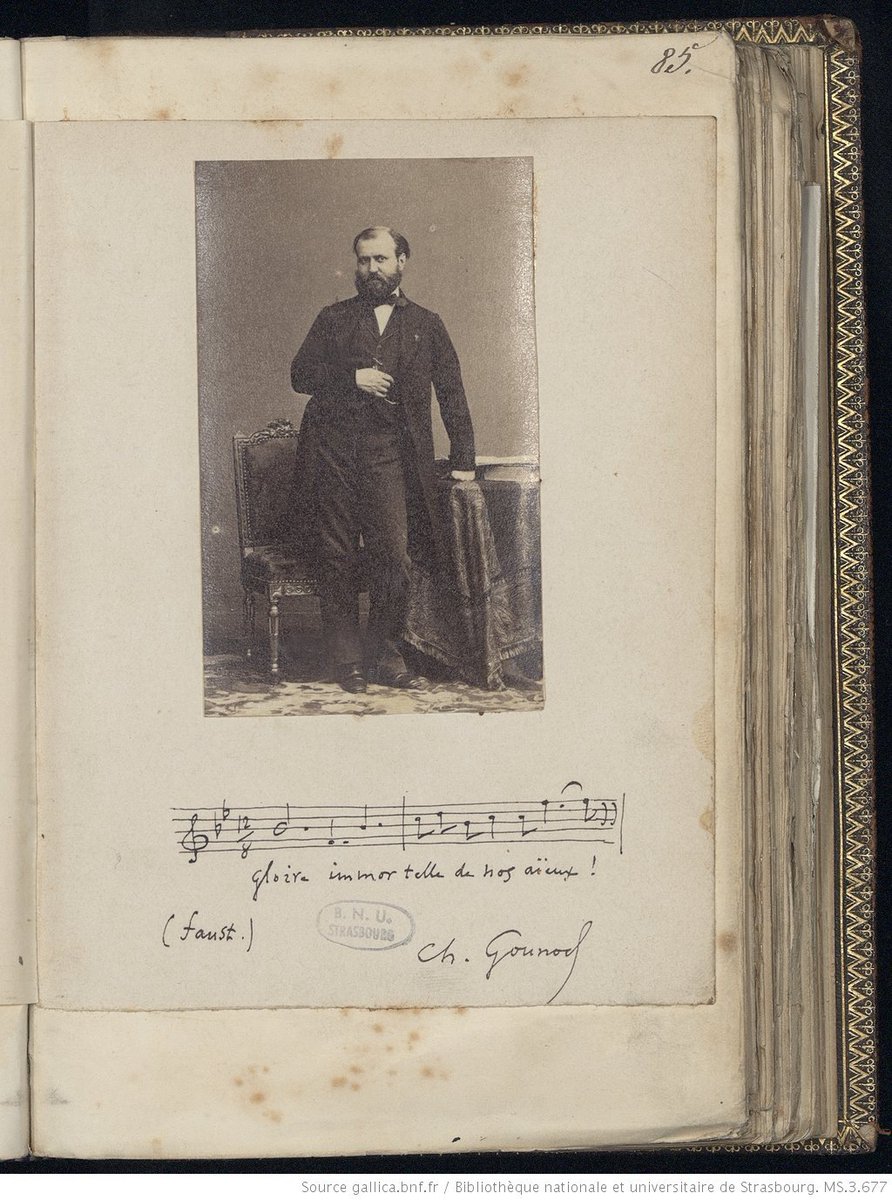 85.
12
8
gloire immortelle de nos aïeux !
(faust.)
B. N. U.
STRASBOURG
Ch. Gounod
Source gallica.bnf.fr / Bibliothèque nationale et universitaire de Strasbourg. MS.3.677